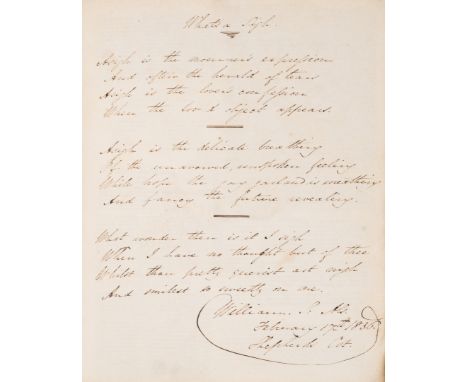 Whats a Sigh.
A sigh is the mourners expression
And often the herald of tears
A sigh is the lovers confession
When the lov'd object appears.
A sigh is the delicate breathing
Of the unavowed, unspoken feeling
While hope the gay garland is wreathing
And fancy the future revealing.
What wonder then is it I sigh
When I have no thought but of thee
Whilst thou pretty querist art nigh
And smilest so sweetly on me.
William. S.
February 17th
Shepherds